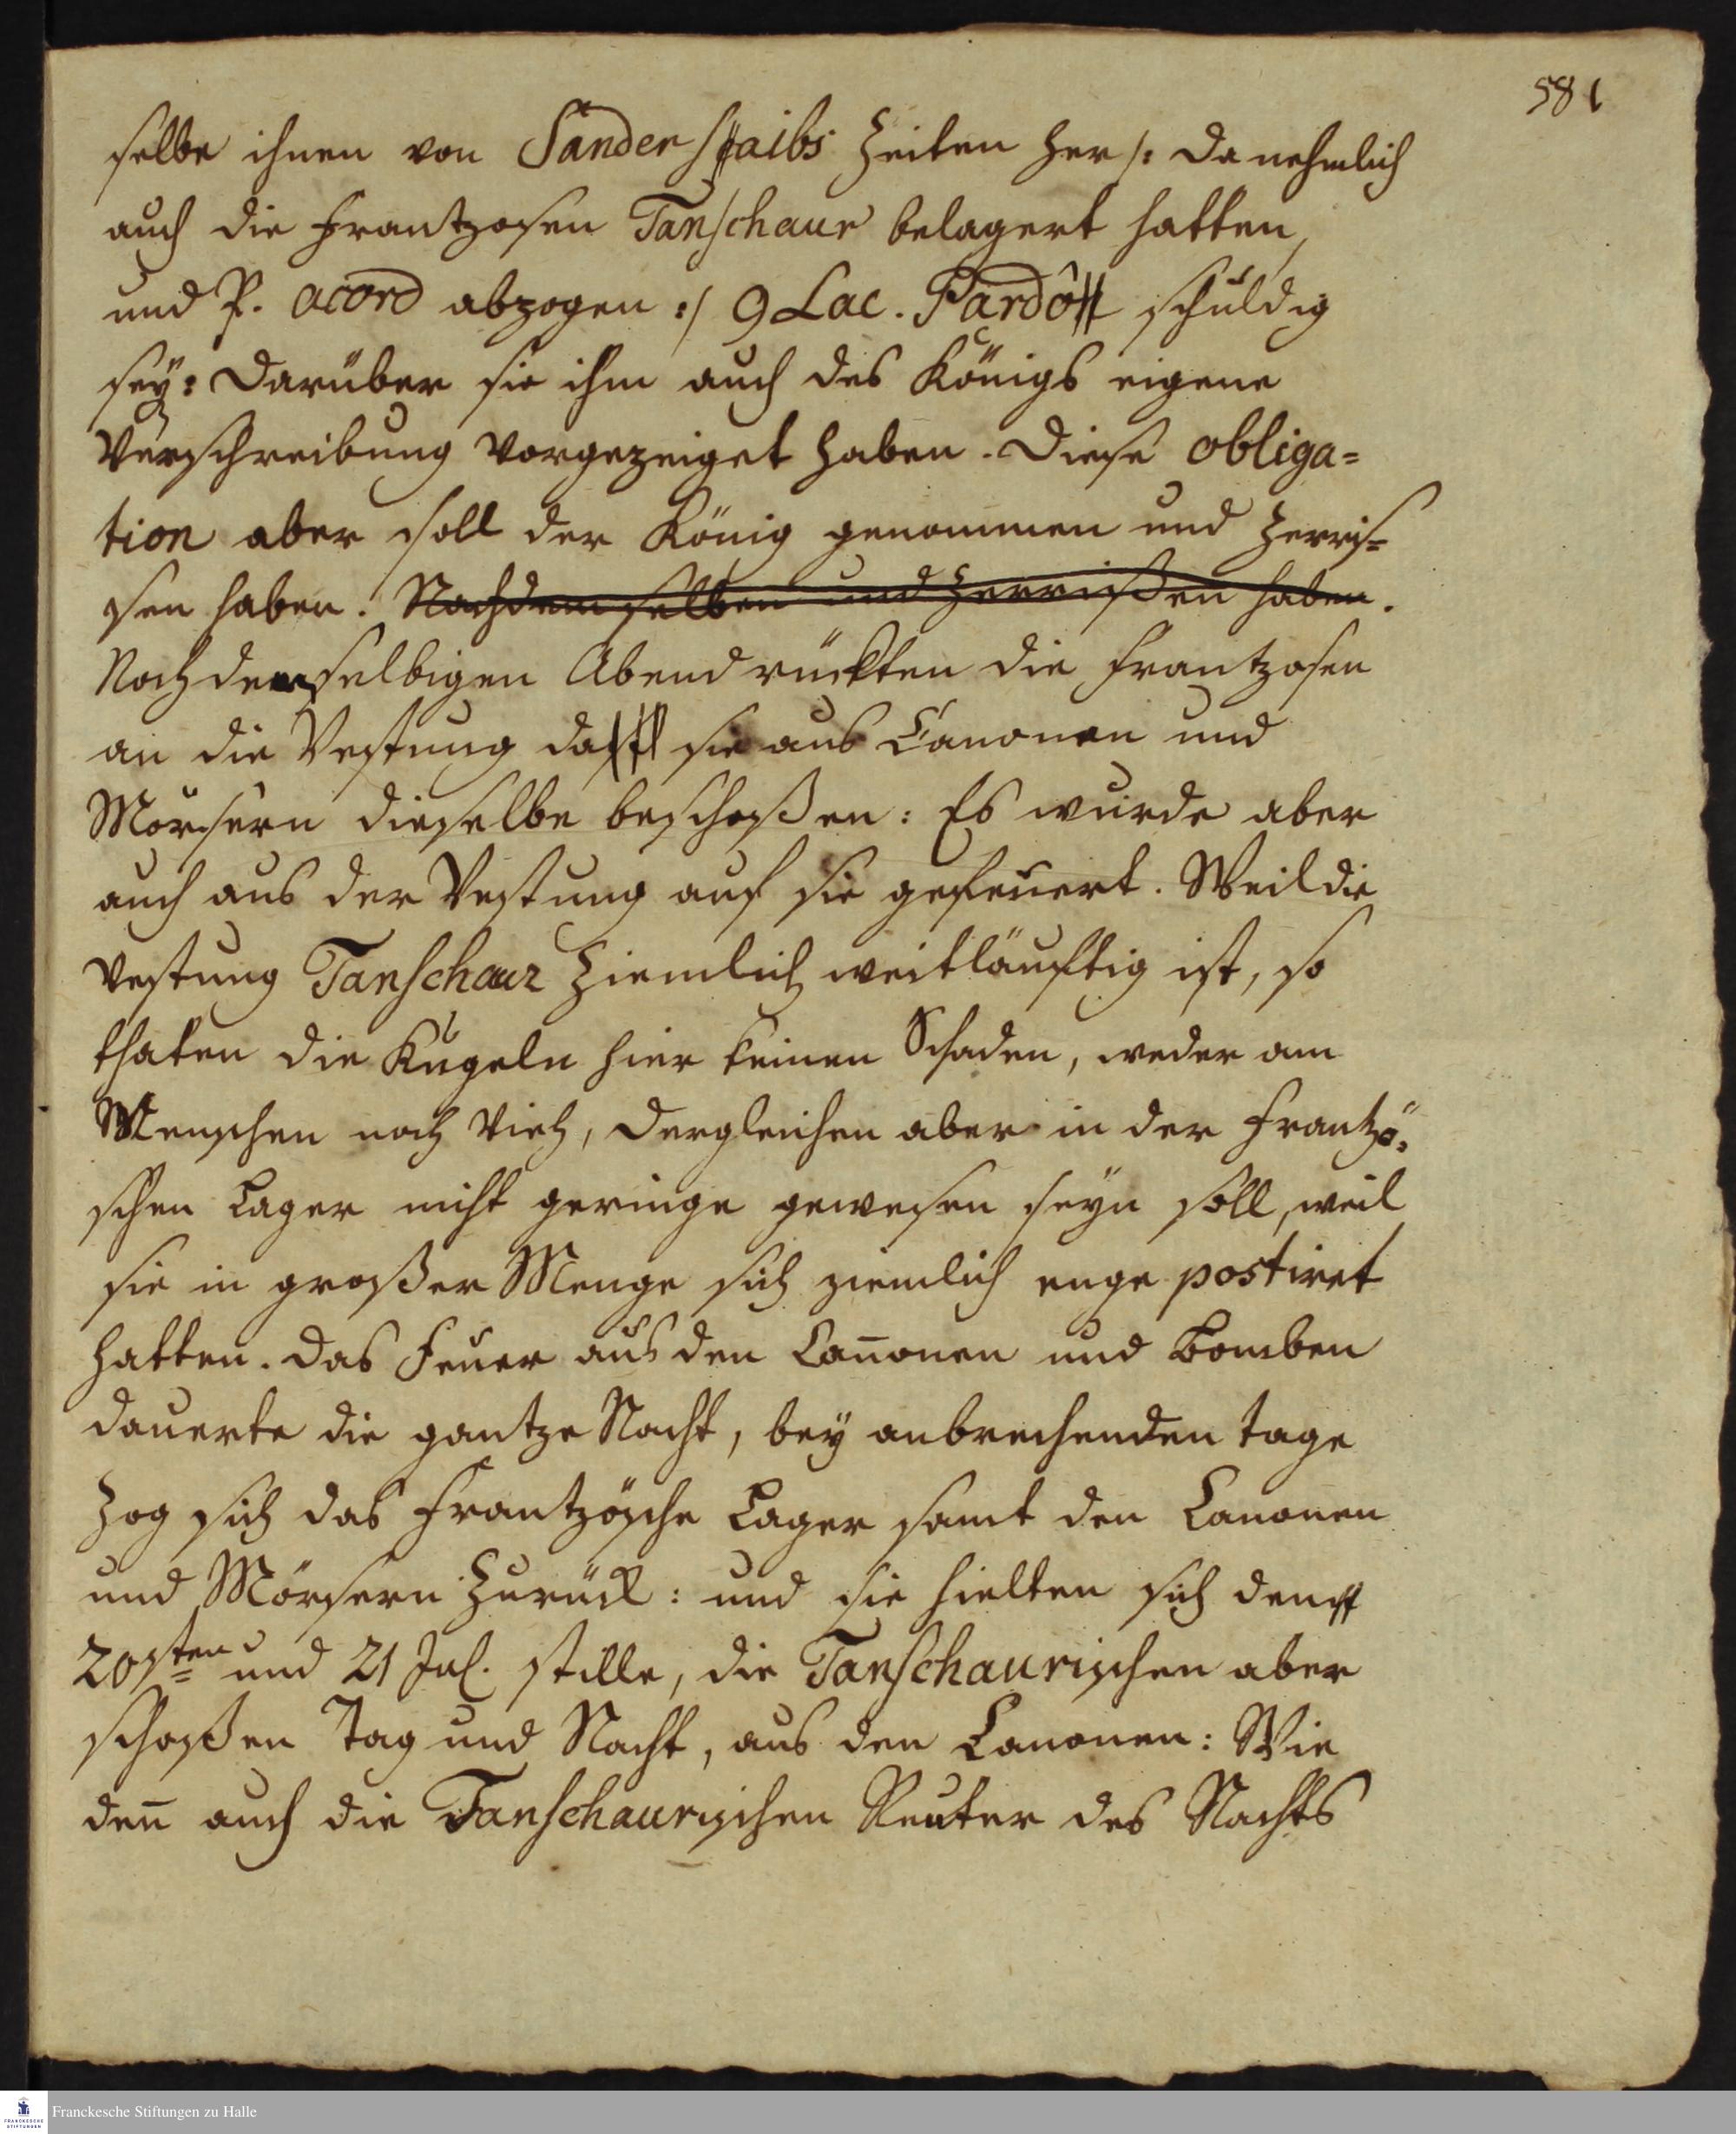 581
selbe ihnen von Sander Saibs Zeiten her /: da nehmlich
auch die Frantzosen Tanschaur belagert hatten,
und P. acord abzogen :/ 9 Lac. Pardô schuldig
sey: darüber sie ihm auch des Königs eigene
Verschreibung vorgezeiget haben. Diese obliga=
tion aber soll der König genommen und zerris=
sen haben. Nachdemselben und zerrißen haben.
Noch denselbigen Abend rückten die Frantzosen
an die Vestung da sie aus Canonen und
Mörsern dieselbe beschoßen: Es wurde aber
auch aus der Vestung auf sie gefeuert. Weil die
Vestung Tanschaur ziemlich weitläuftig ist, so
thaten die Kugeln hier keinen Schaden, weder am
Menschen noch Vieh, dergleichen aber in der Frantzö=
schen Lager nicht geringe gewesen seyn soll, weil
sie in großer Menge sich ziemlich enge postiret
hatten. Das Feuer aus den Cañonen und Bomben
dauerte die gantze Nacht, bey anbrechenden Tage
zog sich das Frantzösche Lager samt den Canonen
und Mörsern zurück: und sie hielten sich den
20sten und 21 Jul. stille, die Tanschaurischen aber
schoßen Tag und Nacht, aus den Canonen: Wie
deñ auch die Tanschaurischen Reuter des Nachts
Franckesche Stiftungen zu Halle
FRANCKESCHE STIFTUNGEN